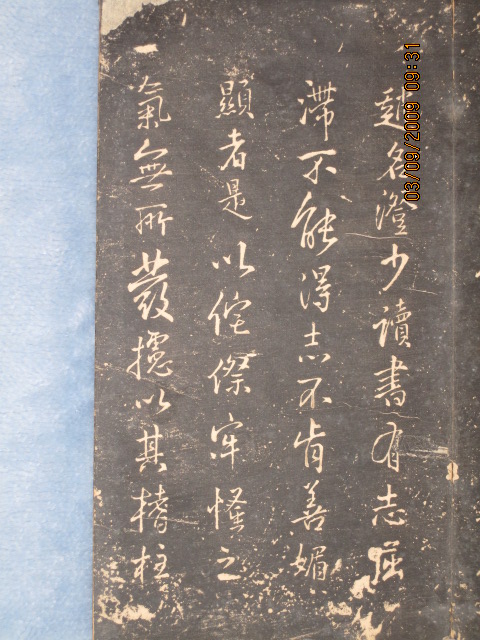 名澄少讀書有志屈
滯不能得志不肯善媚
顯者是以侘傺牢慅之
氣無所發攄以其榰柱
03/09/2009 09:31